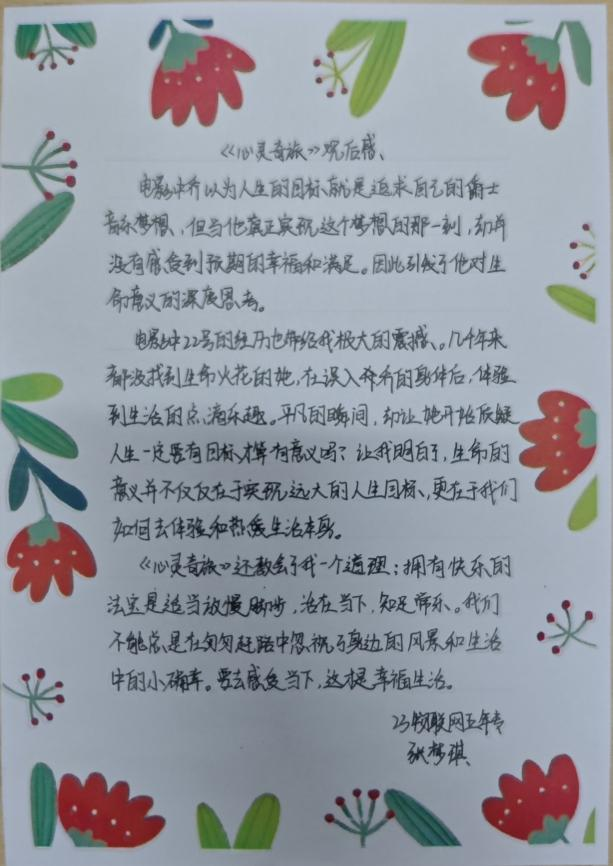 《心灵奇旅》观后感、
电影中乔以为人生的目标就是追求自己的爵士
音乐梦想，但当他真正实现这个梦想的那一刻，却并
没有感受到预期的幸福和满足。因此引发了他对生
命意义的深度思考。
电影中22号的经历也带给我极大的震撼、。几千年来
都没找到生命火花的她，在误入乔乔的身体后，体验
到生活的点滴乐趣。平凡的瞬间，却让她开始质疑
人生一定要有目标才算有意义吗？让我明白了，生命的
意义并不仅仅在于实现远大的人生目标，更在于我们
如何去体验和热爱生活本身。
《心灵奇旅》还教会了我一个道理：拥有快乐的
法宝是适当放慢脚步，活在当下，知足常乐。我们
不能总是在匆匆赶路中忽视了身边的风景和生活
中的小确幸。要去感受当下，这才是幸福生活。
23物联网五年专
张梦琪